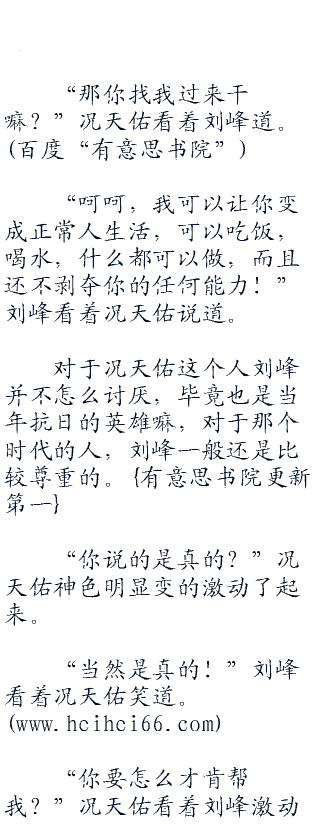 “那你找我过来干
嘛？”况天佑看着刘峰道。
(百度“有意思书院”)
“呵呵，我可以让你变
成正常人生活，可以吃饭，
喝水，什么都可以做，而且
还不剥夺你的任何能力！”
刘峰看着况天佑说道。
对于况天佑这个人刘峰
并不怎么讨厌，毕竟也是当
年抗日的英雄嘛，对于那个
时代的人，刘峰一般还是比
较尊重的。{有意思书院更新
第一}
“你说的是真的？”况
天佑神色明显变的激动了起
来。
“当然是真的！”刘峰
看着况天佑笑道。
(www.hcihci66.com)
“你要怎么才肯帮
我？”况天佑看着刘峰激动